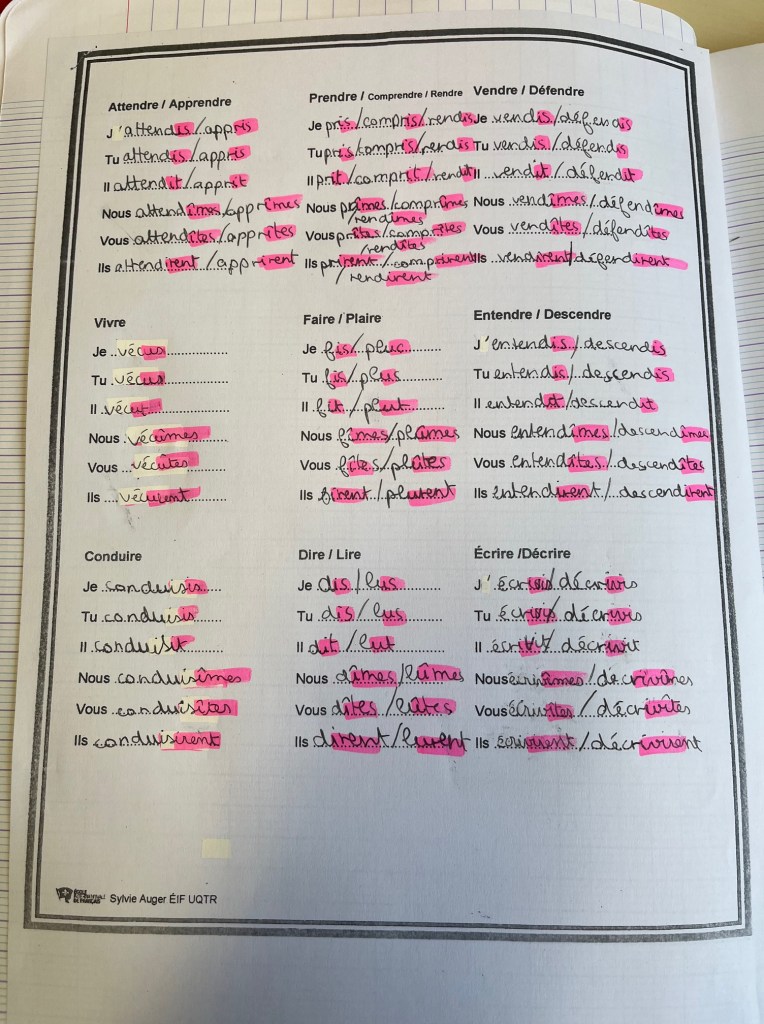 Attendre / Apprendre
J 'attendis/appris
Tu attendis/appris
Il attendit/apprit
Nous attendîmes/apprîmes
Vous attendîtes/apprîtes
Ils attendirent/apprirent
Prendre / Comprendre / Rendre
Je pris/compris/rendis
Tu pris/compris/rendis
Il prit/comprit/rendit
Nous prîmes/comprîmes
/rendîmes
Vous prîtes/comprîtes
/rendîtes
Ils prirent/comprirent
/rendirent
Vendre / Défendre
Je vendis/défendis
Tu vendis/défendis
Il vendit/défendit
Nous vendîmes/défendîmes
Vous vendîtes/défendîtes
Ils vendirent/défendirent
Vivre
Je vécus
Tu vécus
Il vécut
Nous vécûmes
Vous vécûtes
Ils vécurent
Faire / Plaire
Je fis/plus
Tu fis/plus
Il fit/plut
Nous fîmes/plûmes
Vous fîtes/plûtes
Ils firent/plurent
Entendre / Descendre
J 'entendis/descendis
Tu entendis/descendis
Il entendit/descendit
Nous entendîmes/descendîmes
Vous entendîtes/descendîtes
Ils entendirent/descendirent
Conduire
Je conduisis
Tu conduisis
Il conduisit
Nous conduisîmes
Vous conduisîtes
Ils conduisirent
Dire / Lire
Je dis/lus
Tu dis/lus
Il dit/lut
Nous dîmes/lûmes
Vous dîtes/lûtes
Ils dirent/lurent
Écrire /Décrire
J 'écrivis/décrivis
Tu écrivis/décrivis
Il écrivit/décrivit
Nous écrivîmes/décrivîmes
Vous écrivîtes/décrivîtes
Ils écrivirent/décrivirent
Sylvie Auger ÉIF UQTR